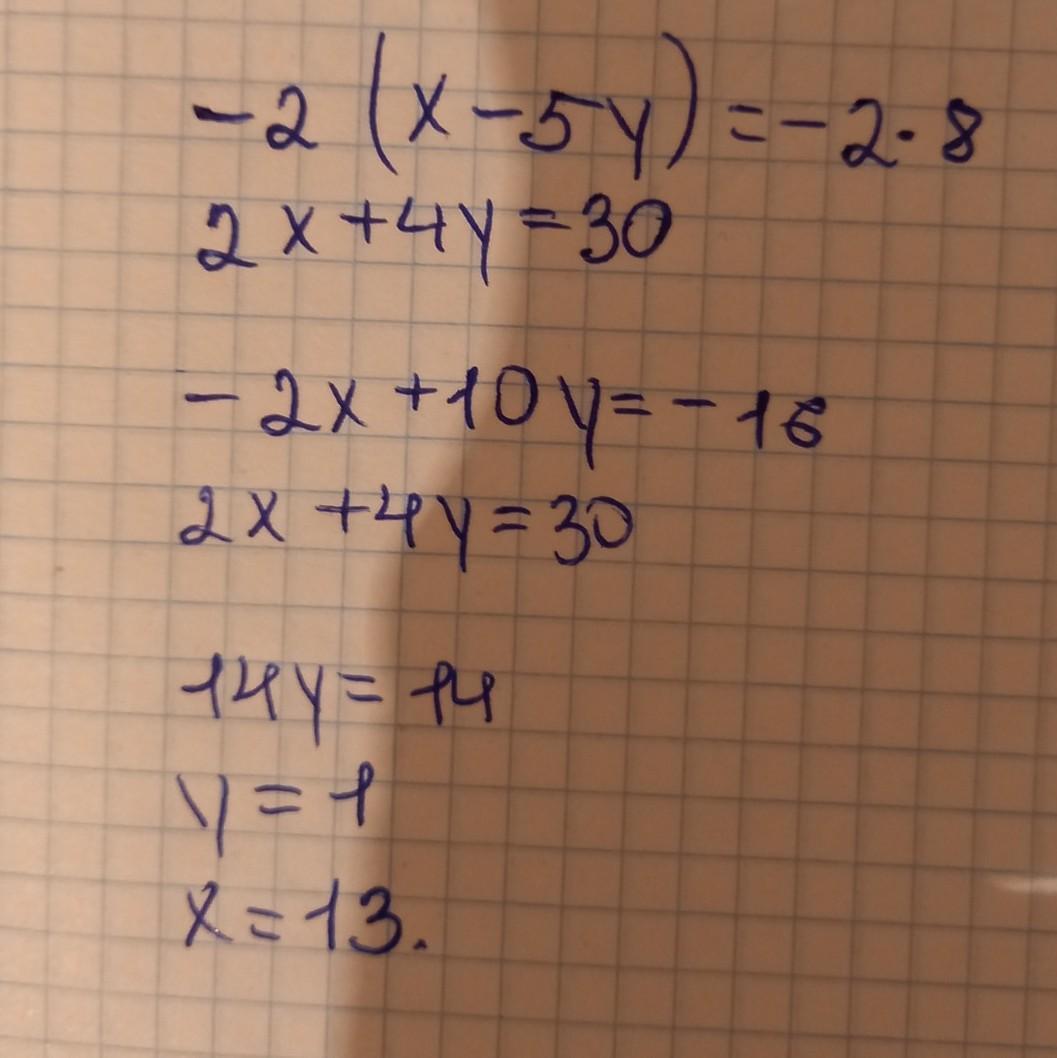 -2 (x-5y) = -2·8
2x+4y=30
-2x+10y=-16
2x+4y=30
14y=14
y=1
x=13.